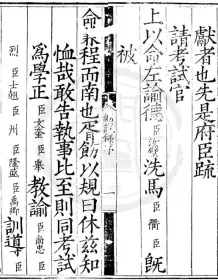 獻者也先是府臣疏
請考試官
上以命左諭德臣汝璧洗馬臣衢臣既
被
命桼程而南也定飭以規曰休玆知
恤哉敢告執事比至則同考試
爲學正臣文奎臣舉教諭臣尚忠臣
烈臣士翹臣州臣隆盛臣萬卿訓導臣